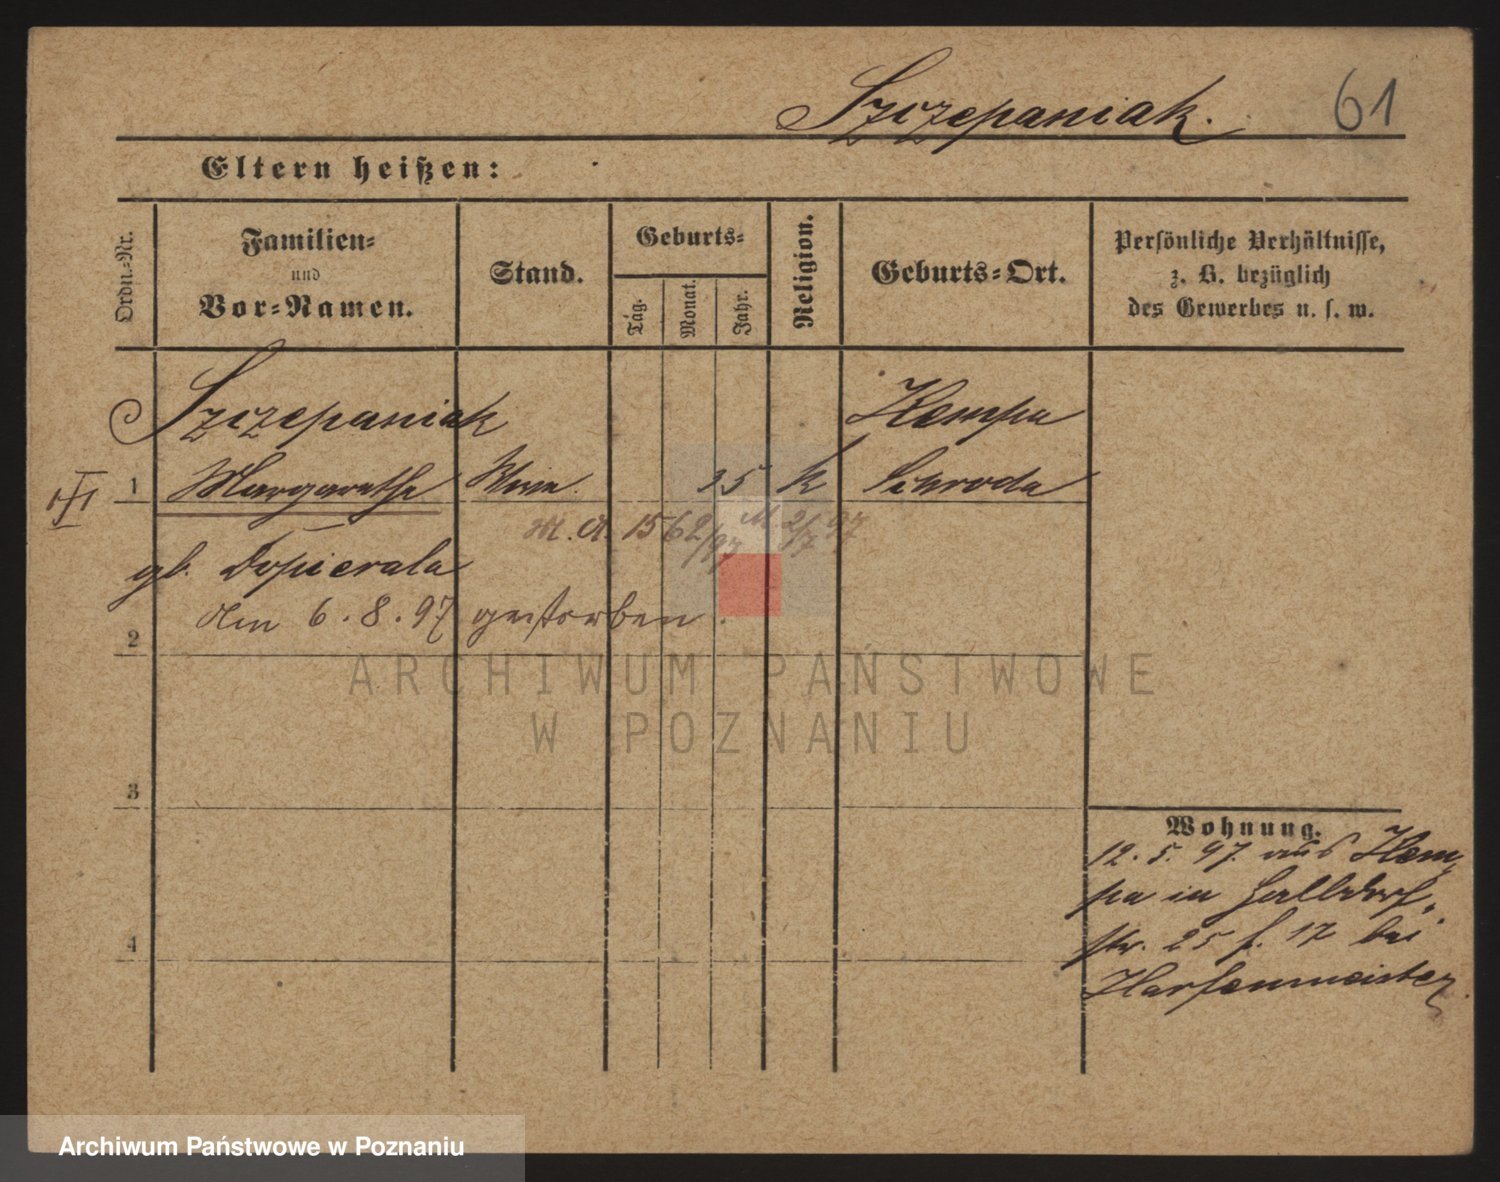 Szczepaniak. 61
Eltern heißen:
Ordn.-Nr.
Familien-
und
Vor-Namen.
Stand.
Geburts-
Tag.
Monat.
Jahr.
Religion.
Geburts-Ort.
Persönliche Verhältnisse,
z. B. bezüglich
des Gewerbes u. s. w.
Szczepaniak Kempa
III 1 Margarethe Wwe. 35 k Schroda
M. A. 1562/97 2/7 97
gb. Dopierala
Am 6. 8. 97 gestorben.
2
ARCHIWUM PAŃSTWOWE
W POZNANIU
3
Wohnung.
12. 5. 97. aus Kem,
pa in Halldorf,
str. 25 f. 17 bei
4
Archiwum Państwowe w Poznaniu